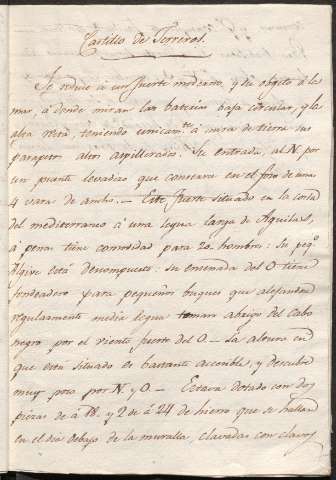 Castillo de Terreros.
Se reduce á un fuerte mediano, y su objeto á la
mar, á donde miran las baterias baja circular, y la
alta recta, teniendo unicam.te á mira de tierra sus
parapetos altos aspillerados. Su entrada, al N. por
un puente levadizo que conserva en el foso de unas
4 varas de ancho. — Este fuerte situado en la costa
del mediterraneo á una legua larga de Aguilas,
á penas tiene comodidad para 20. hombres: Su peq.o
Algive está descompuesto: su ensenada del O tiene
fondeadero para pequeños buques que alejandose
regularmente media legua toman abrigo del Cabo
negro por el viento fuerte del O — La altura en
que está situado es bastante accesible, y descubre
muy poco por N. y O — Estava dotado con dos
piezas de á 18. y 2 de á 24 de hierro que se hallan
en el dia debajo de la muralla, clavadas con clavos